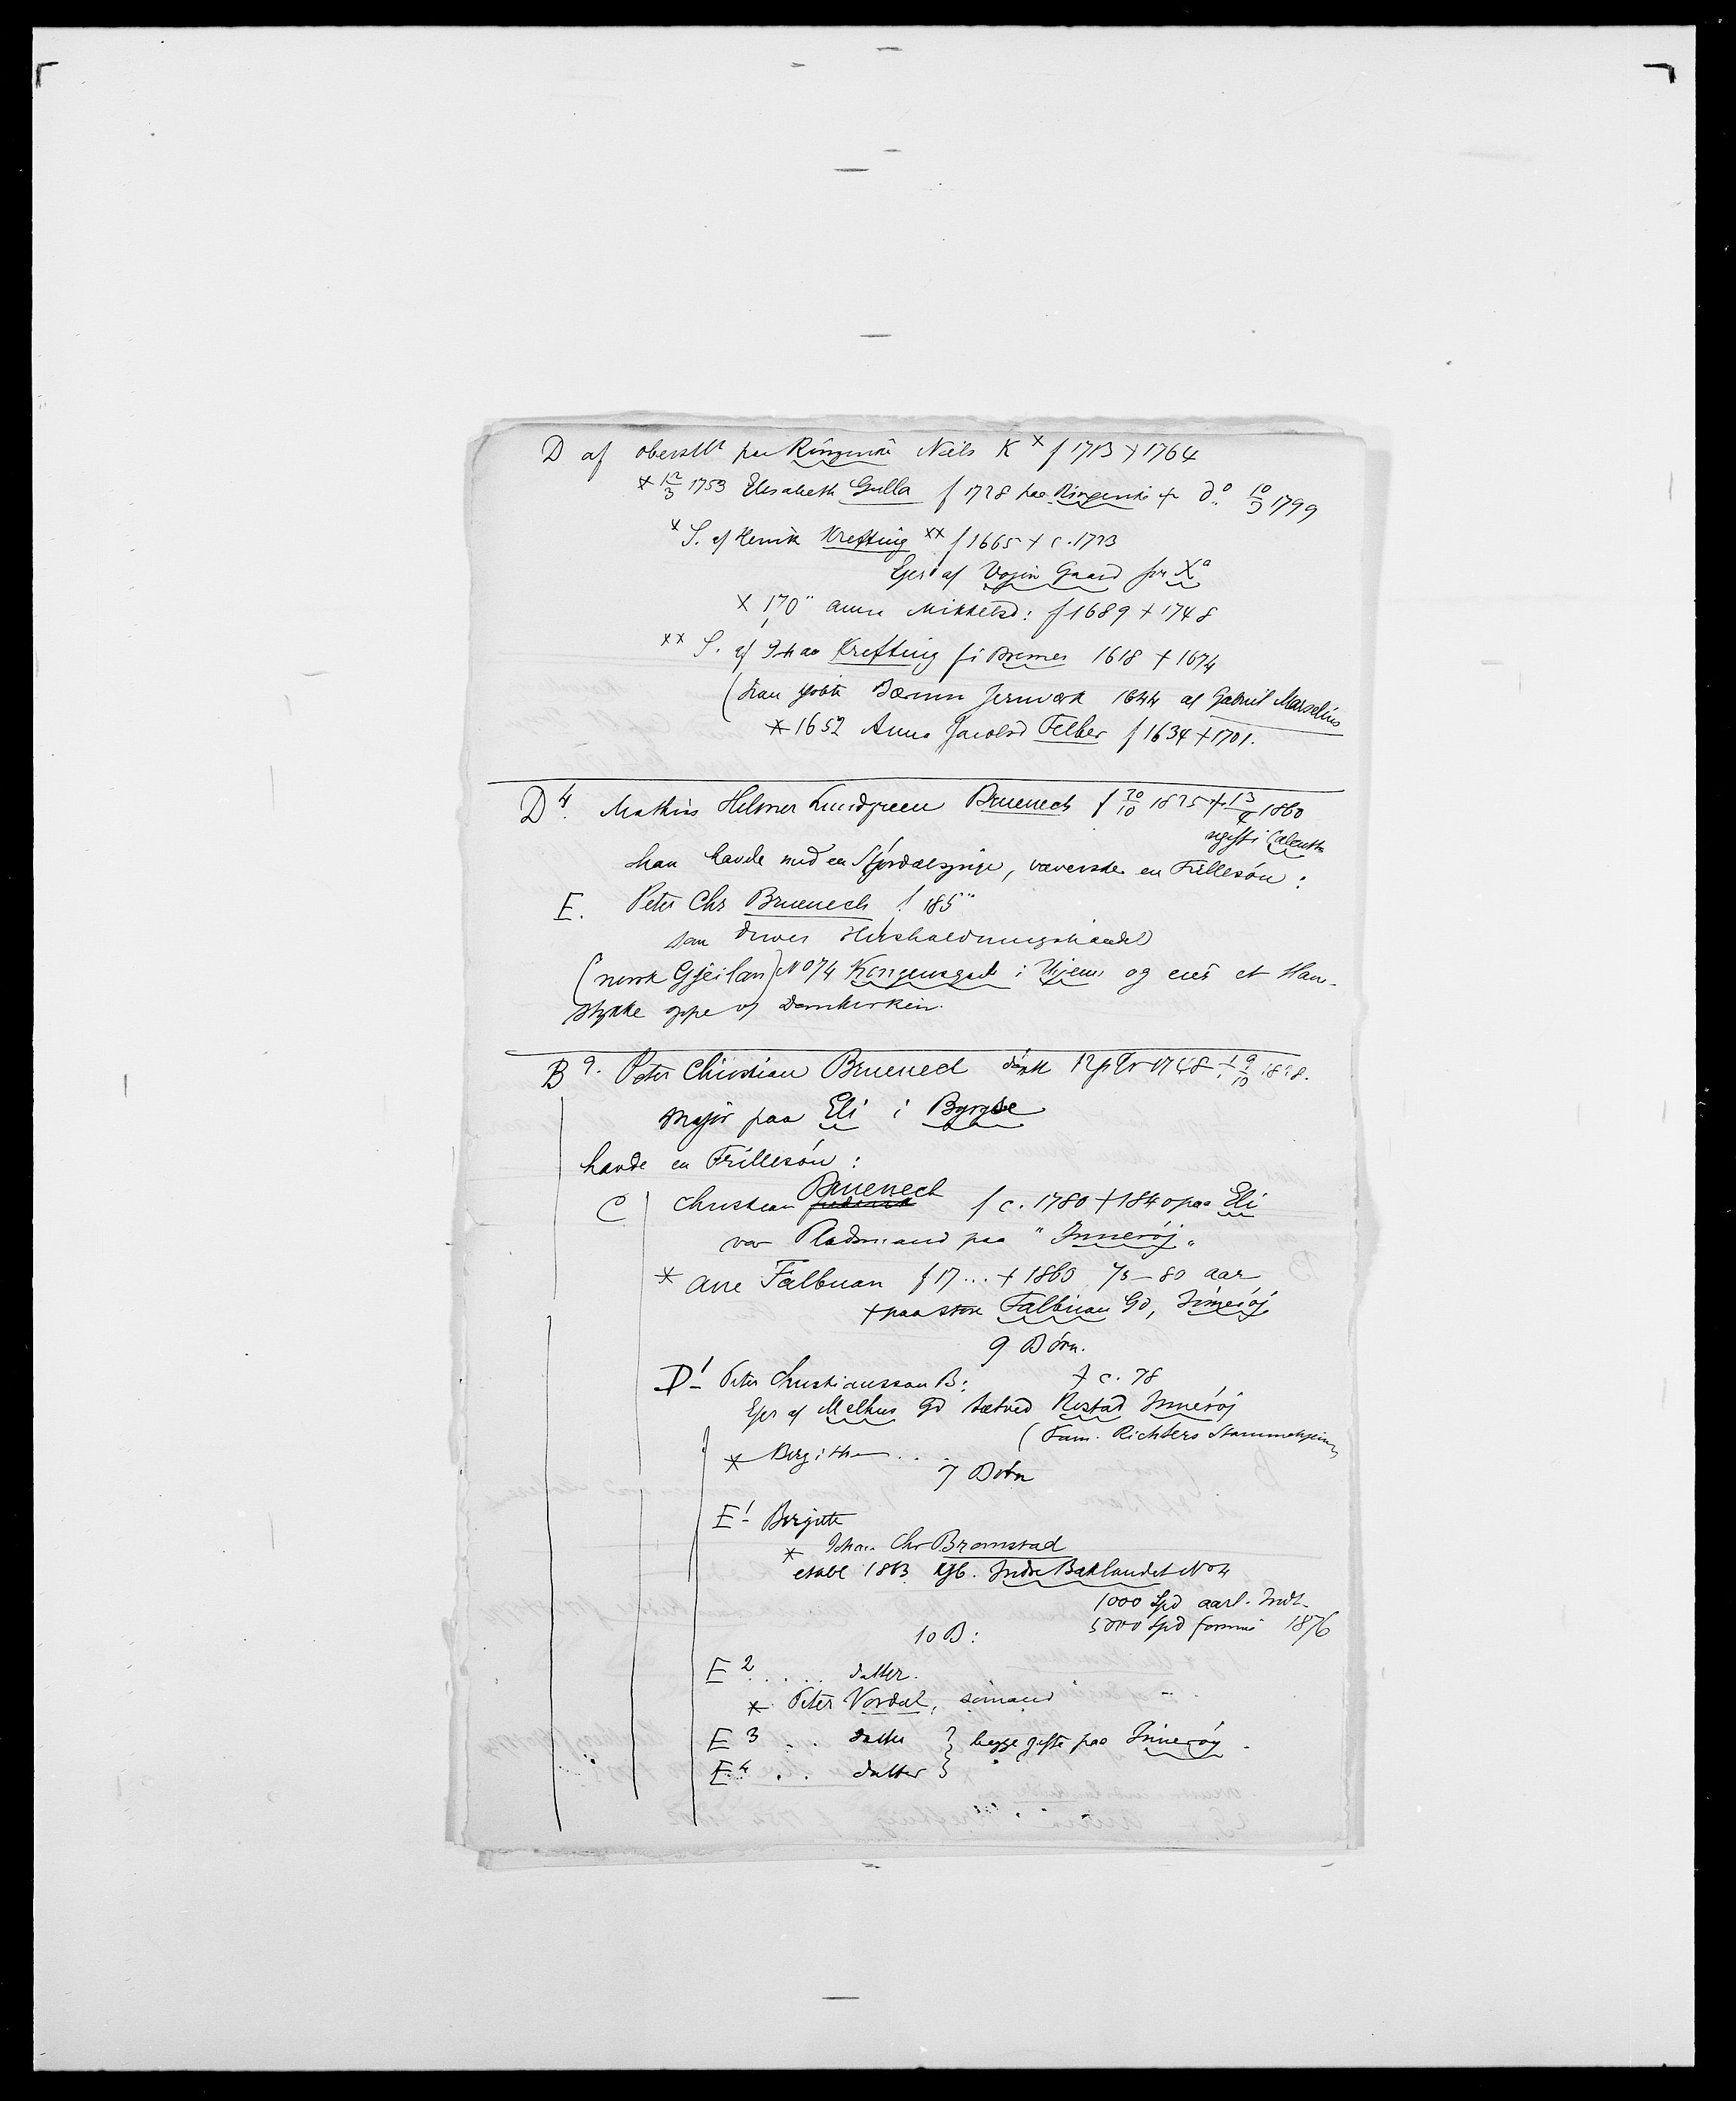 D af oberstlt paa Ringerike Niels K x f 1713 † 1764
x 12/3 1753 Elisabeth Gulla f 1728 paa Ringerike † do 10/3 1799
x S. af Henrik Krefting xx f 1665 † c. 1713
Ejer af Vøjen Gaard for Xa
x 170" Anna Mikkelsd: f 1689 † 1748
xx S. af Johan Krefting f i Bremen 1618 † 1674
(han kjøbte Bærum Jernværk 1644 af Gabriel Marselius
x 1652 Anna Jacobsd Felber f 1634 † 1701.
D4. Mathias Hilmer Lundgreen Bruenech f 20/10 1825 † 13/4 1860
ugift i Calcutta
han havde med en Stjørdalspige, væverske en Frillesøn:
E. Peter Chr Bruenech f 185"
som driver Husholdningshandel
(norsk Gjeilan) No 74 Kongensgade i Thjem og eier et Hau-
stykke oppe ved Domkirken.
B9. Peter Christian Bruenech døbt 1748 † 9/10 1828.
Major paa Eli i Bynæs
havde en Frillesøn:
C Christian Bruenech f c. 1780 † 1840 paa Eli
var Pladsmand paa "Inderøj"
x Ane Falbuan f 17... † 1860 75-80 aar
† paa store Falbuan Gd, Inderøj
9 Børn.
D1 Peter Christianssøn B: † c. 78
Ejer af Melhus Gd tætved Rostad Inderøj
(Fam. Richters Stammehjem)
x Birgithe . . .
7 Børn
E1 Birgitte
x Johan Chr Bromstad
etabl 1863 Kjb. Indre Baklandet No 4
1000 Spd aarl. Indt.
5000 Spd formue 1876
10 B:
E2 .... datter.
x Peter Vordal, sømand
E3 .. datter } begge gifte paa Inderøy.
E4 .. datter }